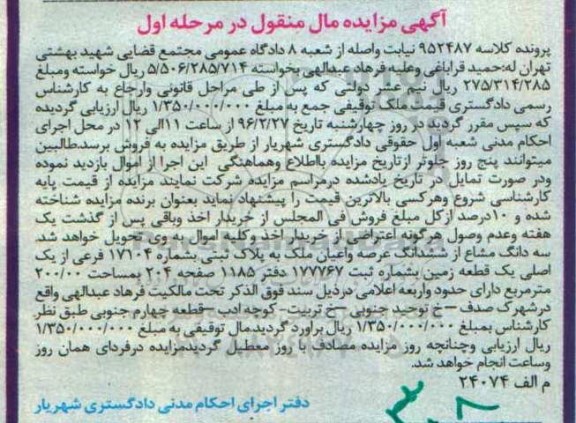 آگهی مزایده مال منقول در مرحله اول
پرونده کلاسه ۹۵۲۴۸۷ نیابت واصله از شعبه ۸ دادگاه عمومی مجتمع قضایی شهید بهشتی
تهران له:حمید قراباغی وعلیه فرهاد عبدالهی بخواسته ۵/۵۰۶/۲۸۵/۷۱۴ ریال خواسته ومبلغ
۲۷۵/۳۱۴/۲۸۵ ریال نیم عشر دولتی که پس از طی مراحل قانونی وارجاع به کارشناس
رسمی دادگستری قیمت ملک توقیفی جمع به مبلغ ۱/۳۵۰/۰۰۰/۰۰۰ ریال ارزیابی گردیده
که سپس مقرر گردید در روز چهارشنبه تاریخ ۹۶/۲/۲۷ از ساعت ۱۱الی ۱۲ در محل اجرای
احکام مدنی شعبه اول حقوقی دادگستری شهریار از طریق مزایده به فروش برسد.طالبین
میتوانند پنج روز جلوتر ازتاریخ مزایده بااطلاع وهماهنگی این اجرا از اموال بازدید نموده
ودر صورت تمایل در تاریخ یادشده درمراسم مزایده شرکت نمایند مزایده از قیمت پایه
کارشناسی شروع وهرکسی بالاترین قیمت را پیشنهاد نماید بعنوان برنده مزایده شناخته
شده و ۱۰درصد ازکل مبلغ فروش فی المجلس از خریدار اخذ وباقی پس از گذشت یک
هفته وعدم وصول هرگونه اعتراضی از خریدار اخذ وکلیه اموال به وی تحویل خواهد شد.
سه دانگ مشاع از ششدانگ عرصه واعیان ملک به پلاک ثبتی بشماره ۱۷۱۰۴ فرعی از یک
اصلی یک قطعه زمین بشماره ثبت ۱۷۷۷۶۷ دفتر ۱۱۸۵ صفحه ۲۰۴ بمساحت ۲۰۰/۰۰
مترمربع دارای حدود واربعه اعلامی درذیل سند فوق الذکر تحت مالکیت فرهاد عبدالهی واقع
درشهرک صدف – خ توحید جنوبی – خ تربیت – کوچه ادب –قطعه چهارم جنوبی طبق نظر
کارشناس بمبلغ ۱/۳۵۰/۰۰۰/۰۰۰ ریال برآورد گردید.مال توقیفی به مبلغ ۱/۳۵۰/۰۰۰/۰۰۰
ریال ارزیابی وچنانچه روز مزایده مصادف با روز معطیل گردیدمزایده درفردای همان روز
وساعت انجام خواهد شد.
م الف ۲۴۰۷۴
دفتر اجرای احکام مدنی دادگستری شهریار